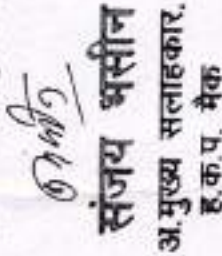 संजय भसीन
अ.मुख्य सलाहकार.
ह.क.प्र. मैक